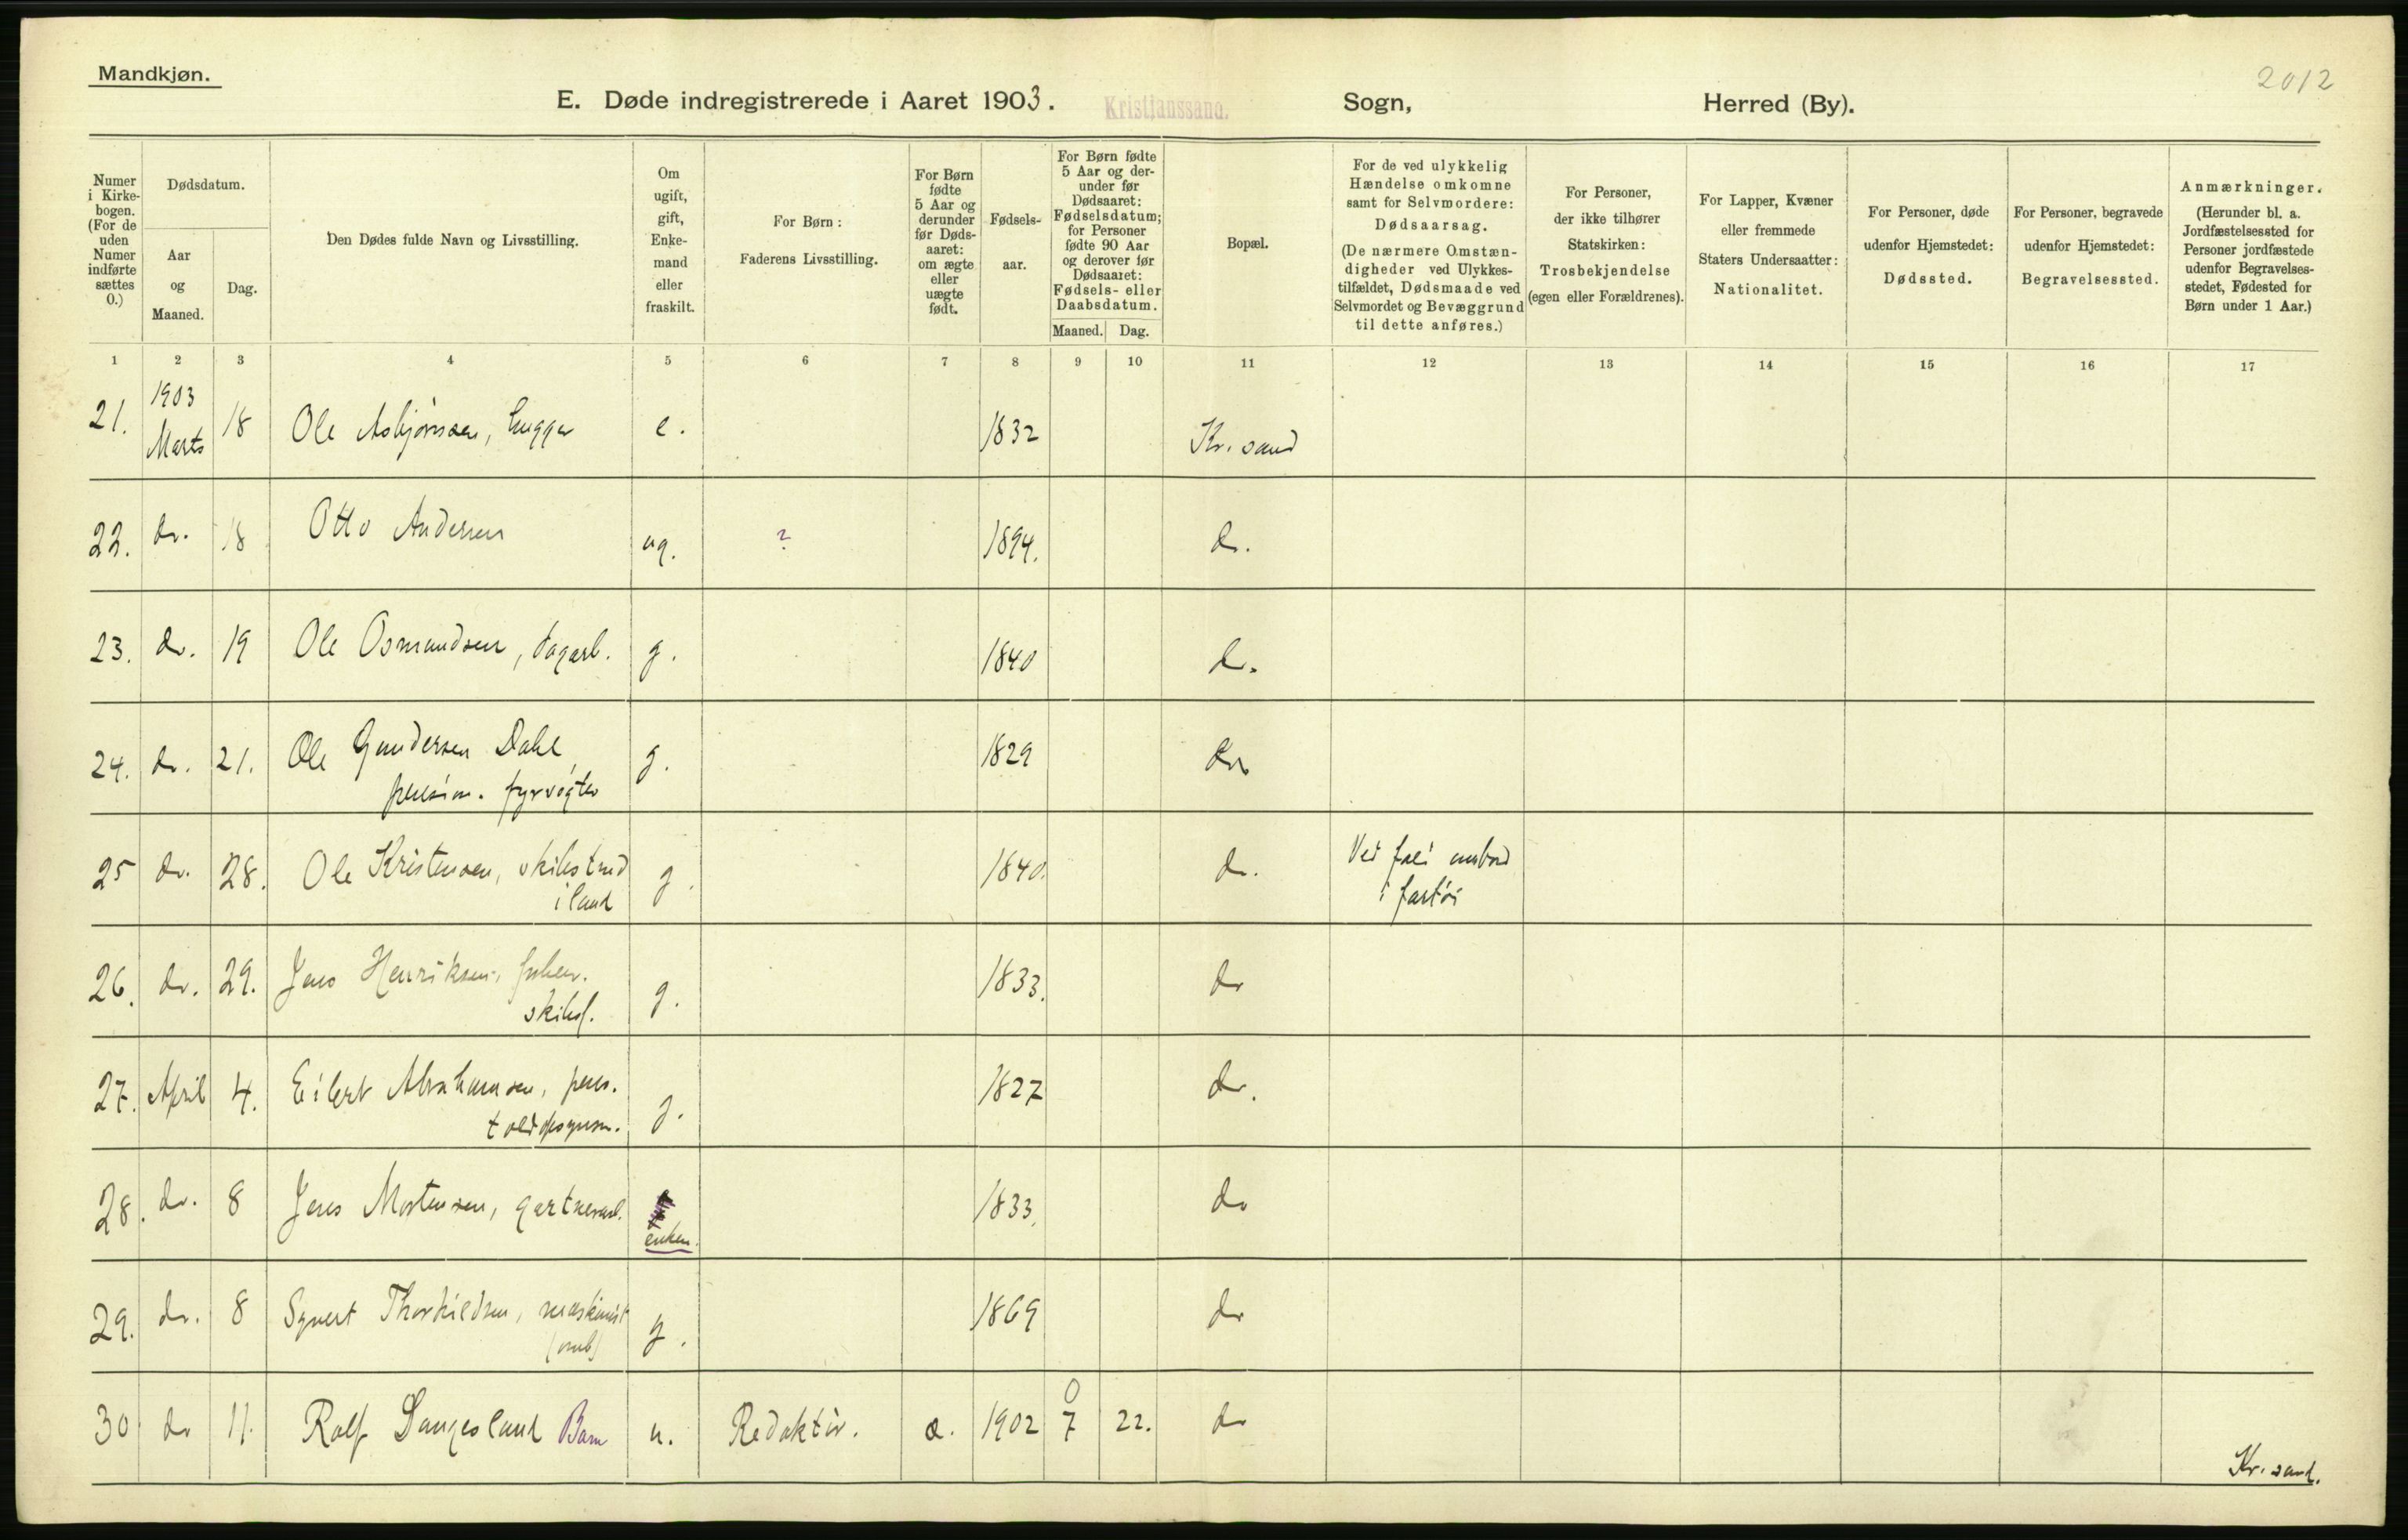 Mandkjøn.
2012
E. Døde indregistrerede i Aaret 1903. Kristianssand. Sogn, Herred (By).
Numer i Kirke-bogen. (For de uden Numer indførte sættes 0.)
Dødsdatum.
Aar og Maaned.
Dag.
Den Dødes fulde Navn og Livsstilling.
Om ugift, gift, Enke-mand eller fraskilt.
For Børn: Faderens Livsstilling.
For Børn fødte 5 Aar og derunder før Døds-aaret: om ægte eller uægte født.
Fødsels-aar.
For Børn fødte 5 Aar og der-under før Dødsaaret: Fødselsdatum; for Personer fødte 90 Aar og derover før Dødsaaret: Fødsels- eller Daabsdatum.
Maaned. Dag.
Bopæl.
For de ved ulykkelig Hændelse omkomne samt for Selvmordere: Dødsaarsag. (De nærmere Omstæn-digheder ved Ulykkes-tilfældet, Dødsmaade ved Selvmordet og Bevæggrund til dette anføres.)
For Personer, der ikke tilhører Statskirken: Trosbekjendelse (egen eller Forældrenes).
For Lapper, Kvæner eller fremmede Staters Undersaatter: Nationalitet.
For Personer, døde udenfor Hjemstedet: Dødssted.
For Personer, begravede udenfor Hjemstedet: Begravelsessted.
Anmærkninger. (Herunder bl. a. Jordfæstelsessted for Personer jordfæstede udenfor Begravelses-stedet, Fødested for Børn under 1 Aar.)
1 2 3 4 5 6 7 8 9 10 11 12 13 14 15 16 17
1903
21. Marts 18 Ole Asbjørnsen, lugger e. 1832 Kr. sand
22. do. 18 Otto Andersen ug. ? 1894. do.
23. do. 19 Ole Osmundsen, dagarb. g. 1840 do.
24. do. 21. Ole Gundersen Dahl, g. 1829 do
pension. fyrvogter
25 do. 28. Ole Kristensen, skibstmd g. 1840. do. Ved fald ombord
iland i fartøi
26. do. 29. Jens Henriksen, g. 1833. do
skibsf.
27. April 4. Eilert Abrahamsen, pens. g. 1827 do.
toldopsynsm.
28. do. 8 Jens Mortensen, gartnerarb. 1833. do
enkem.
29. do. 8 Syvert Thorkildsen, maskinist g. 1869 do
(omb)
0
30 do 11. Rolf Langesland Barn u. Redaktør. æ. 1902 7 22. do
Kr. sand.